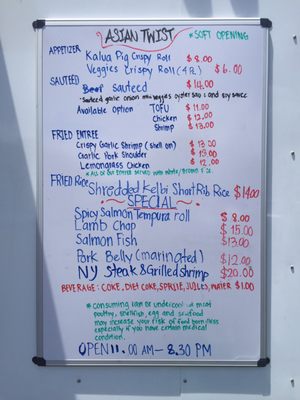 ASIAN TWIST
*SOFT OPENING
APPETIZER
Kalua Pig Crispy Roll $8.00
Veggies Crispy Roll (4P.) $6.00
SAUTEED
Beef sauteed $14.00
*Sauteed garlic onion veggies oyster sauce and soy sauce
Available Option TOFU $11.00
Chicken $12.00
Shrimp $13.00
FRIED ENTREE
Crispy Garlic Shrimp (shell on) $13.00
Garlic Pork Shoulder $13.00
Lemongrass Chicken $12.00
*ALL OF OUR ENTREE SERVED WITH WHITE/BROWN
FRIED Rice
Shredded Kelbi Short Rib Rice $14.00
~SPECIAL~
Spicy Salmon Tempura roll $8.00
Lamb Chop $15.00
Salmon Fish $13.00
Pork Belly (marinated) $12.00
NY Steak & Grilled Shrimp $20.00
BEVERAGE: COKE, DIET COKE, SPRITE, JUICE, WATER $1.00
*Consuming raw or undercooked meat
poultry, shellfish, egg and seafood
may increase your risk of food born illness
especially if you have certain medical
condition.
OPEN 11.00 AM - 8.30 PM